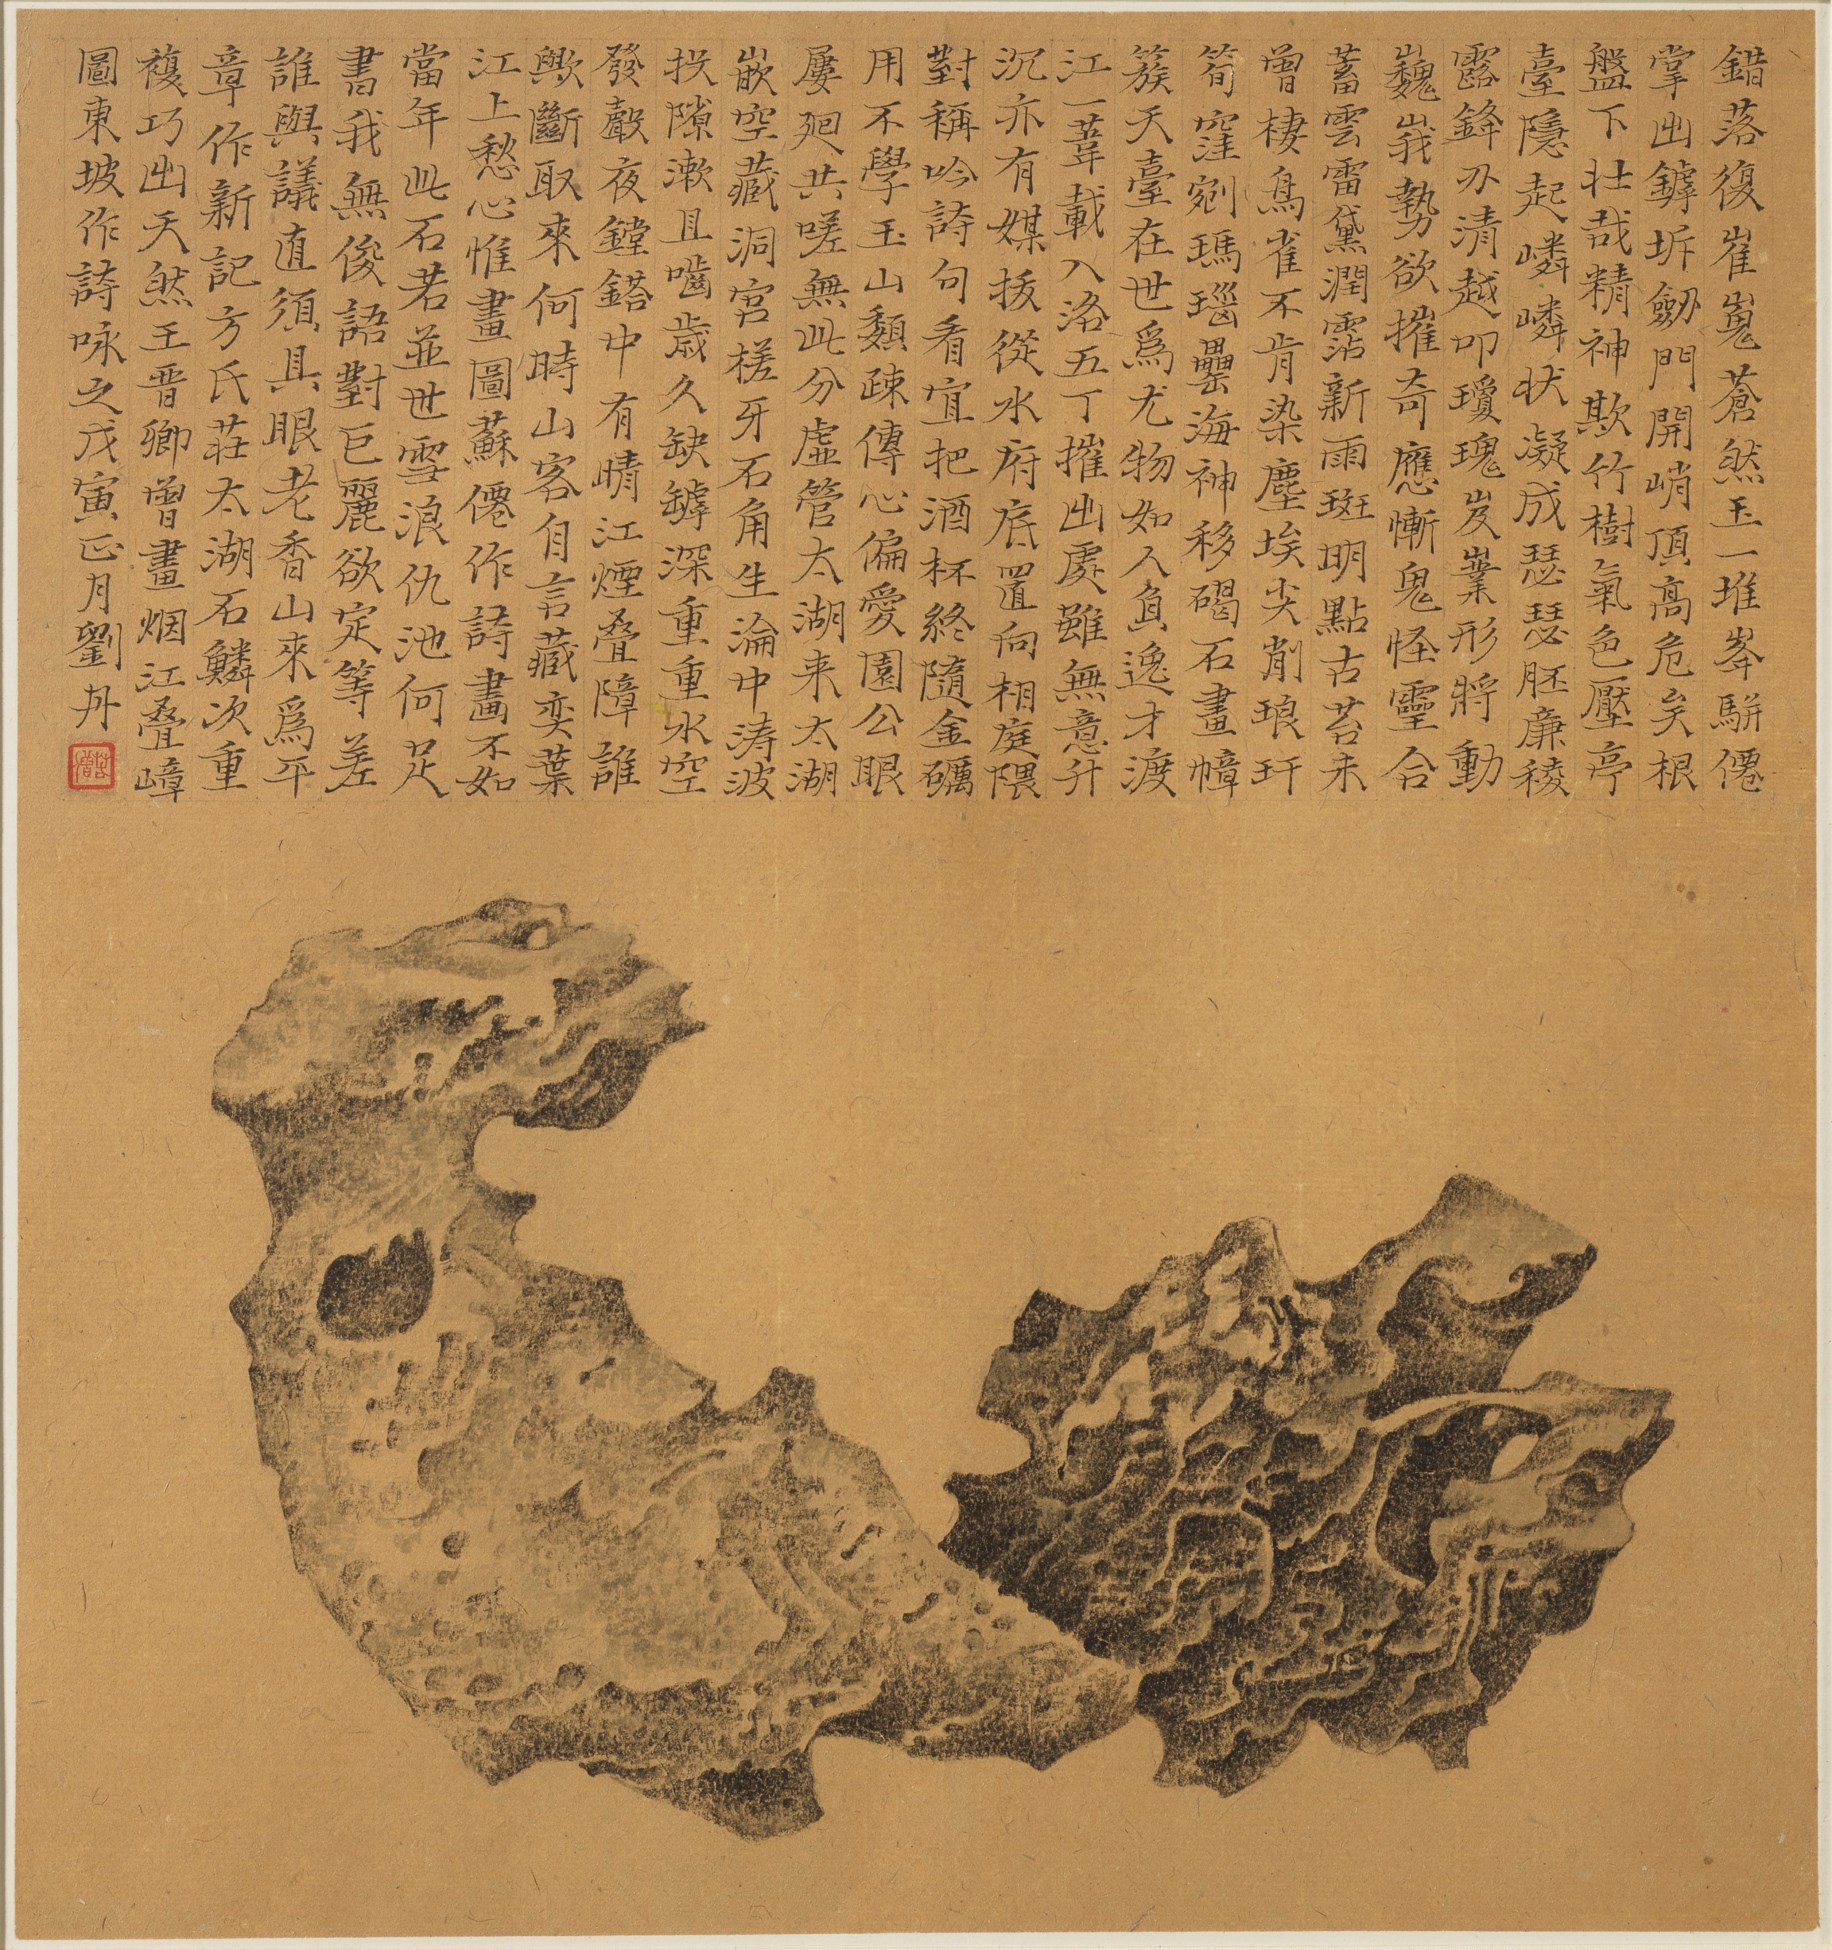 錯落復崔嵬蒼然玉一堆峯駢僊
掌出罅坼劒門開峭頂高危矣根
盤下壮哉精神欺竹樹氣色壓亭
臺隱起嶙嶙状凝成瑟瑟胚廉稜
露鋒刃清越叩瓊瑰岌嶪形將動
巍峩勢欲摧奇應慚鬼怪靈合
蓄雲雷黛潤霑新雨斑明點古苔未
曾棲鳥雀不肯染塵埃尖削琅玕
筍窪剜瑪瑙罍海神移碣石畫幛
簇天臺在世爲尤物如人負逸才渡
江一葦載入洛五丁摧出處雖無意升
沉亦有媒拔從水府底置向相庭隈
對稱吟詩句看宜把酒杯終隨金礪
用不學玉山頽疎傳心偏愛園公眼
屢廻共嗟無此分虛管太湖来太湖
嵌空藏洞宮槎牙石角生淪中涛波
投隙漱且嚙歳久缺罅深重重水空
發聲夜鏜鎝中有晴江煙叠障誰
歟斷取來何時山客自言藏奕葉
江上愁心惟畫圖蘇僊作詩畫不如
當年此石若並世雪浪仇池何足
書我無俊語對巨麗欲定等差
誰與議直須具眼老香山來爲平
章作新記方氏莊太湖石鱗次重
複巧出天然王晋卿曾畫烟江叠嶂
圖東坡作詩咏之戊寅正月劉丹